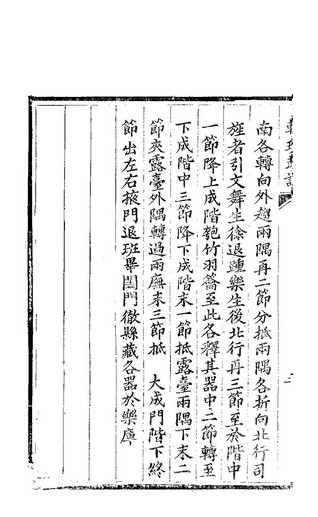 南各轉向外趨兩隅再二節分抵兩隅各折向北行司
旌者引文舞生徐退踵樂生後北行再三節至於階中
一節降上成階匏竹羽籥至此各釋其器中二節轉至
下成階中三節降下成階末一節抵露臺兩隅下末二
節夾露臺外隅轉過兩廡末三節抵　大成門階下終
節出左右掖門退班畢閤門徹縣藏各器於樂庫